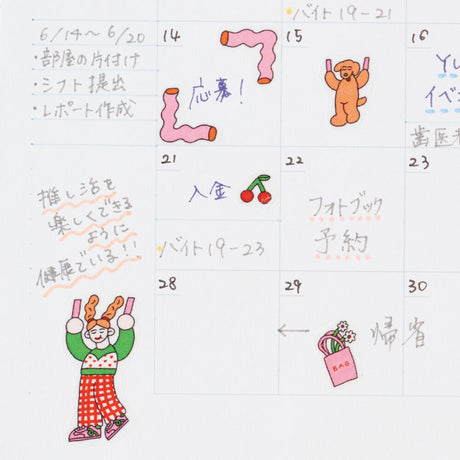 バイト 19-21
6/14〜6/20
・部屋の片付け
・シフト提出
・レポート作成
14
応募!
15
16
イベ
歯医者
21
入金
バイト 19-23
22
フォトブック
予約
23
推し活を
楽しくできる
ように
健康でいる!!
28
29
BAG
← 帰省
30